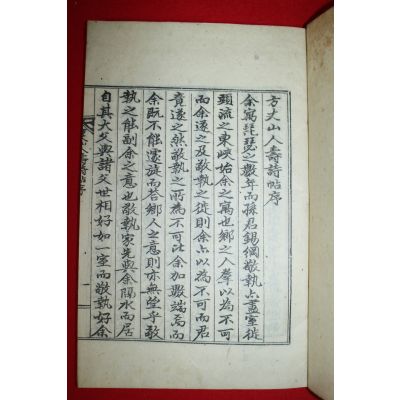 方丈山人壽詩帖序
余寓琵琶之數年而孫君錫綱敬執亦盡室從
頭流之東峽始余之寓也鄉之人羣以爲不可
而余遂之及敬執之徙則余亦以爲不可而君
竟遂之然敬執之所爲不可比余加數端焉而
余旣不能還旋而答鄉人之意則亦無望乎敬
執之能副余之意也敬執家先與余隔水而居
自其大父與諸父世相好如一室而敬執好余